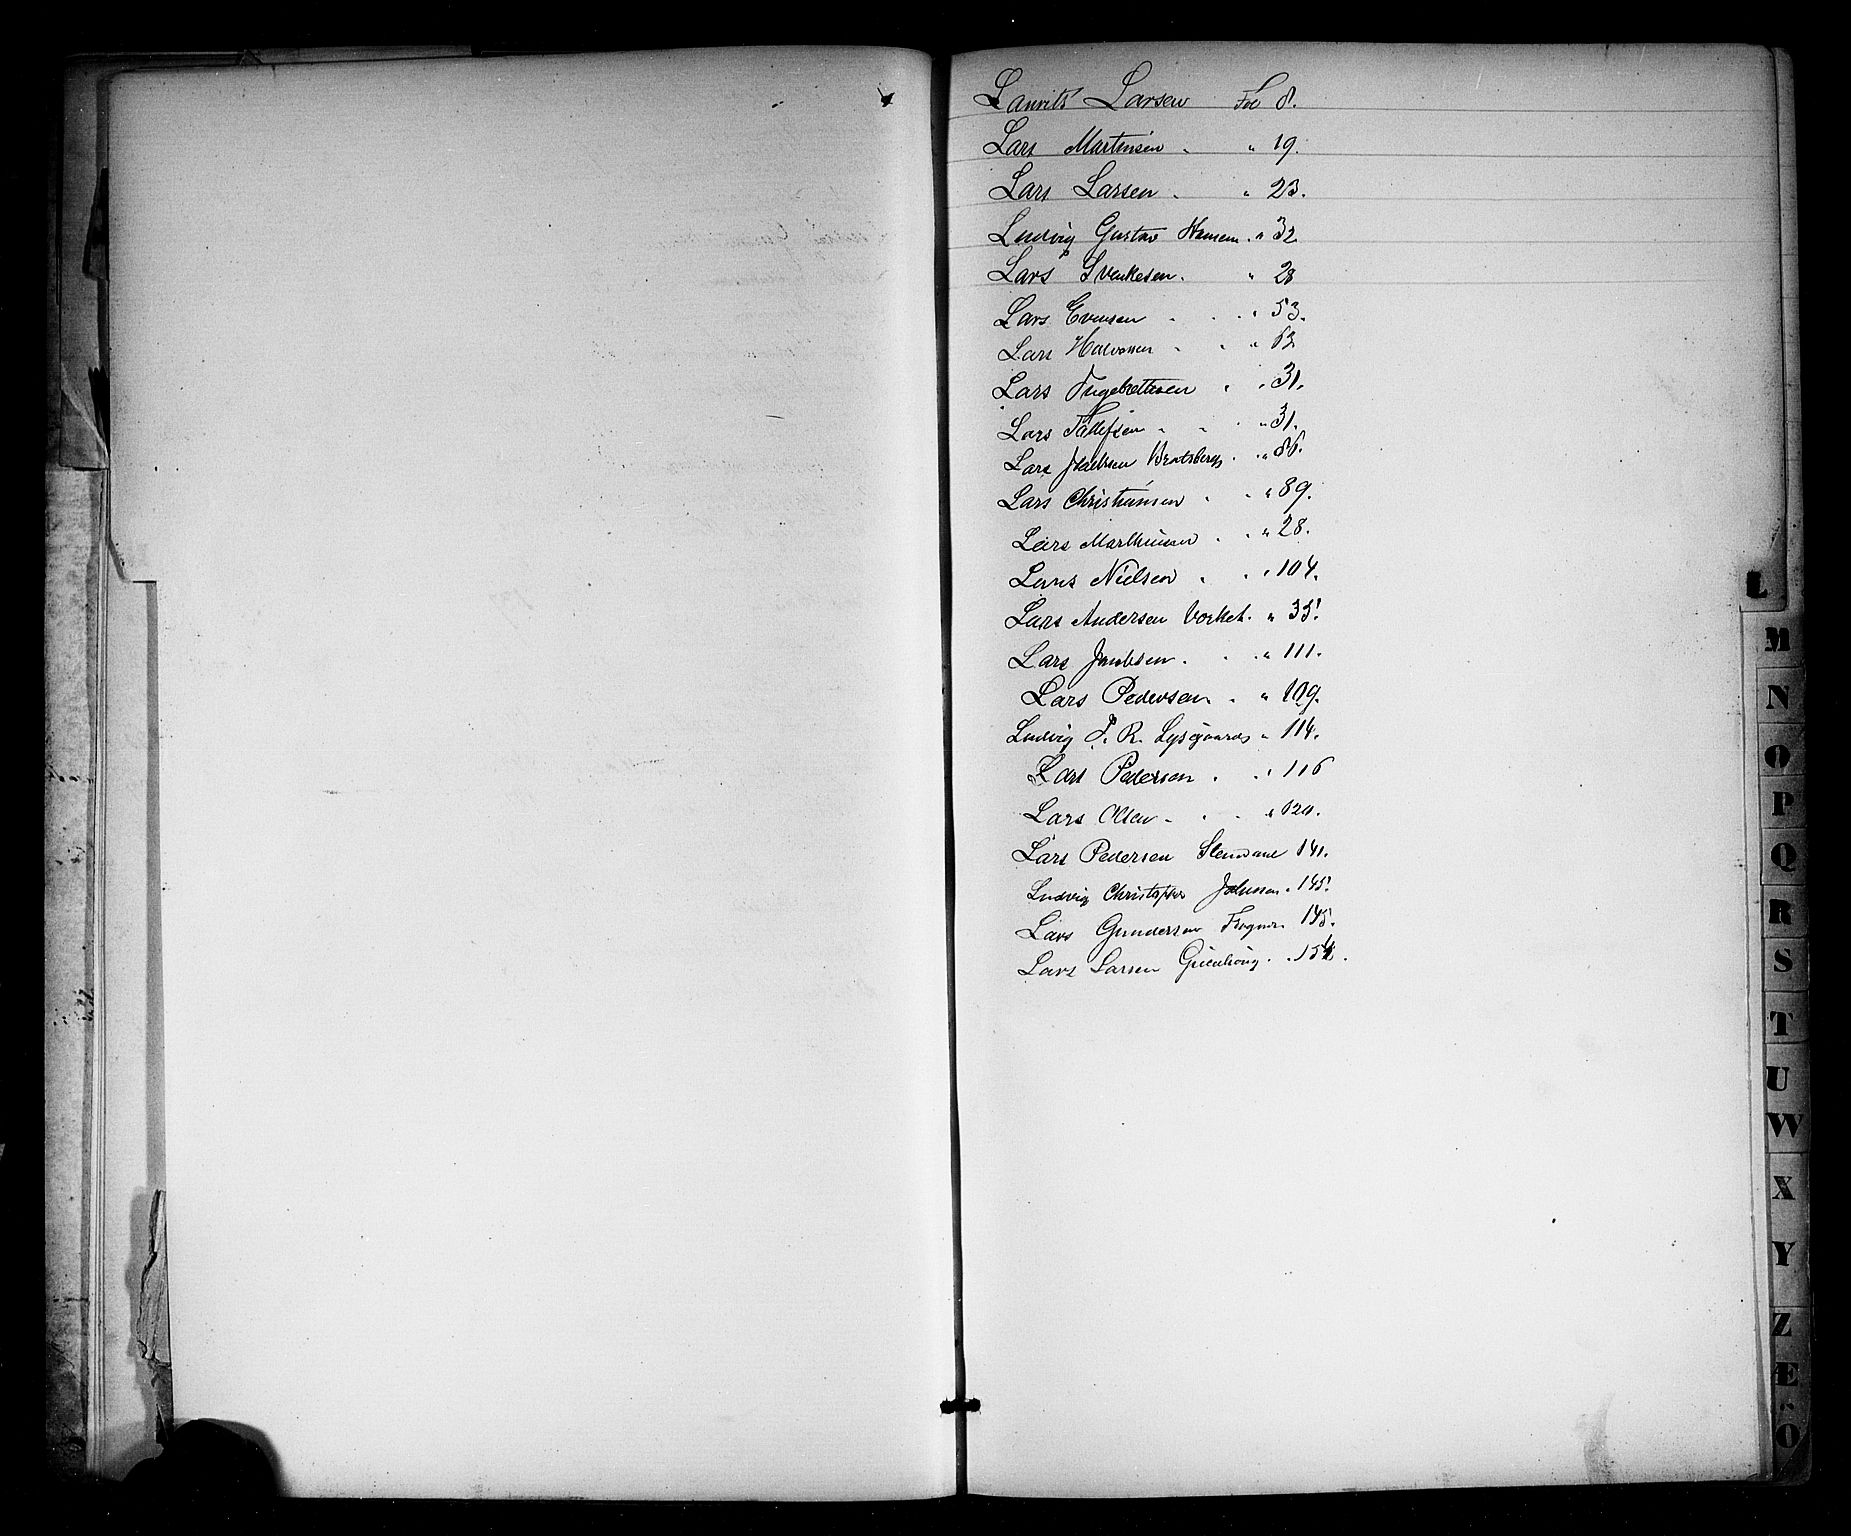 Laurits Larsen Fol 8.
Lars Martinsen . " 19.
Lars Larsen . " 23.
Ludvig Gustav Hansen . " 32
Lars Svenkesen . " 28
Lars Evensen . . . " 53.
Lars Halvorsen . . " 63
Lars Ingebretsen . " 31.
Lars Tollefsen . . . " 31.
Lars Jacobsen Bratsberg . . " 86.
Lars Christiansen . . " 89.
Lars Marthinsen . . " 28.
Lars Nielsen . . " 104.
Lars Andersen Vorket . " 35.
Lars Jacobsen . . . " 111.
Lars Pedersen . . " 109.
Ludvig J. R. Lysgaard " 114.
Lars Pedersen . . " 116
Lars Olsen . . . " 120.
Lars Pedersen 141.
Ludvig Christopher Johnsen . 145.
Lars Gundersen Frogner 145.
Lars Larsen . . 154.
L
M
N
O
P
Q
R
S
T
U
W
X
Y
Z
Æ
Ö